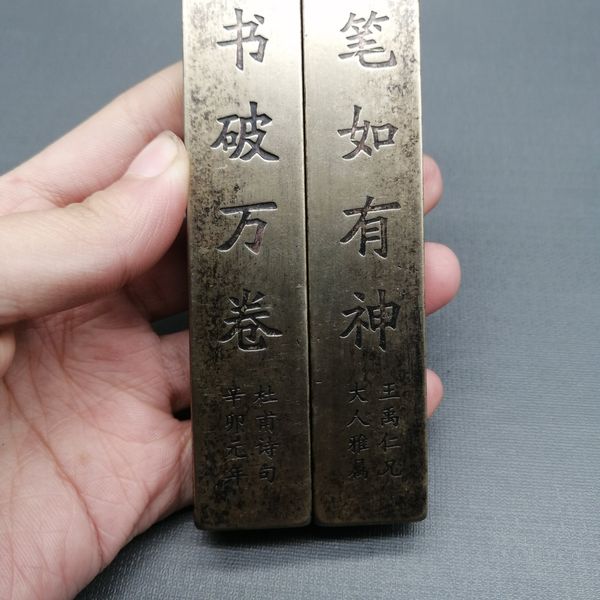 书破万卷
杜甫诗句
辛卯元年
笔如有神
王禹仁兄
大人雅属